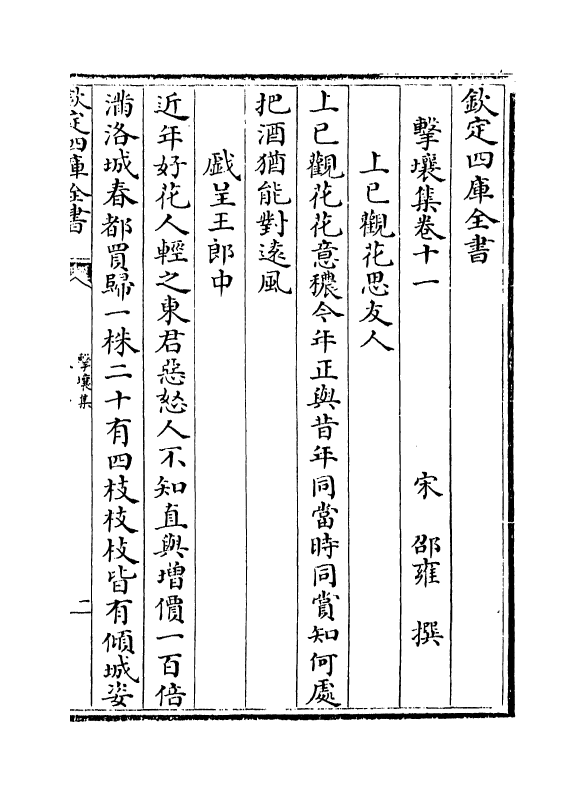 欽定四庫全書
擊壤集卷十一 宋 邵雍 撰
上巳觀花思友人
上巳觀花花意穠今年正與昔年同當時同賞知何處
把酒猶能對遠風
戯呈王郎中
近年好花人輕之東君惡怒人不知直與増價一百倍
滿洛城春都買歸一株二十有四枝枝枝皆有傾城姿
欽定四庫全書
擊壤集